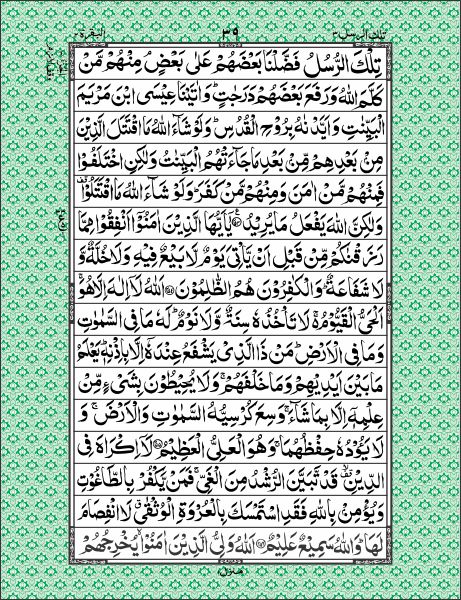 تلك الرسل ٣ ٣٩ البقرة ٢
تِلْكَ الرُّسُلُ فَضَّلْنَا بَعْضَهُمْ عَلٰى بَعْضٍ مِنْهُمْ مَّنْ
كَلَّمَ اللّٰهُ وَرَفَعَ بَعْضَهُمْ دَرَجٰتٍ وَاٰتَيْنَا عِيْسَى ابْنَ مَرْيَمَ
الْبَيِّنٰتِ وَاَيَّدْنٰهُ بِرُوْحِ الْقُدُسِ وَلَوْ شَآءَ اللّٰهُ مَا اقْتَتَلَ الَّذِيْنَ
مِنْ بَعْدِهِمْ مِّنْ بَعْدِ مَا جَآءَتْهُمُ الْبَيِّنٰتُ وَلٰكِنِ اخْتَلَفُوْا
فَمِنْهُمْ مَّنْ اٰمَنَ وَمِنْهُمْ مَّنْ كَفَرَ وَلَوْ شَآءَ اللّٰهُ مَا اقْتَتَلُوْا
وَلٰكِنَّ اللّٰهَ يَفْعَلُ مَا يُرِيْدُ يٰٓاَيُّهَا الَّذِيْنَ اٰمَنُوْٓا اَنْفِقُوْا مِمَّا
رَزَقْنٰكُمْ مِّنْ قَبْلِ اَنْ يَّاْتِيَ يَوْمٌ لَّا بَيْعٌ فِيْهِ وَلَا خُلَّةٌ وَّ
لَا شَفَاعَةٌ وَالْكٰفِرُوْنَ هُمُ الظّٰلِمُوْنَ اَللّٰهُ لَآ اِلٰهَ اِلَّا هُوَ
اَلْحَيُّ الْقَيُّوْمُ لَا تَاْخُذُهٗ سِنَةٌ وَّلَا نَوْمٌ لَهٗ مَا فِي السَّمٰوٰتِ
وَمَا فِي الْاَرْضِ مَنْ ذَا الَّذِيْ يَشْفَعُ عِنْدَهٗٓ اِلَّا بِاِذْنِهٖ يَعْلَمُ
مَا بَيْنَ اَيْدِيْهِمْ وَمَا خَلْفَهُمْ وَلَا يُحِيْطُوْنَ بِشَيْءٍ مِّنْ
عِلْمِهٖٓ اِلَّا بِمَا شَآءَ وَسِعَ كُرْسِيُّهُ السَّمٰوٰتِ وَالْاَرْضَ وَ
لَا يَـُٔوْدُهٗ حِفْظُهُمَا وَهُوَ الْعَلِيُّ الْعَظِيْمُ لَآ اِكْرَاهَ فِي
الدِّيْنِ قَدْ تَّبَيَّنَ الرُّشْدُ مِنَ الْغَيِّ فَمَنْ يَّكْفُرْ بِالطَّاغُوْتِ
وَيُؤْمِنْ بِاللّٰهِ فَقَدِ اسْتَمْسَكَ بِالْعُرْوَةِ الْوُثْقٰى لَا انْفِصَامَ
لَهَا وَاللّٰهُ سَمِيْعٌ عَلِيْمٌ اَللّٰهُ وَلِيُّ الَّذِيْنَ اٰمَنُوْا يُخْرِجُهُمْ